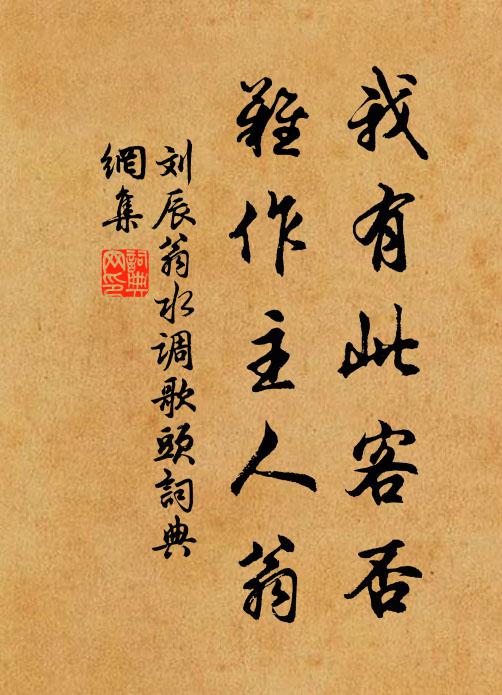 我有此客否
難作主人翁
刘辰翁水调歌頭詞典
網集
詞典
网印